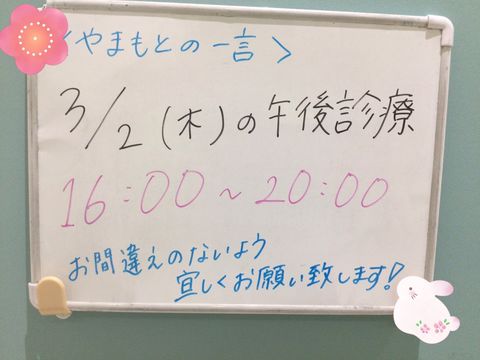 ＜やまもとの一言＞
3/2(木)の午後診療
16:00~20:00
お間違えのないよう
宜しくお願い致します!